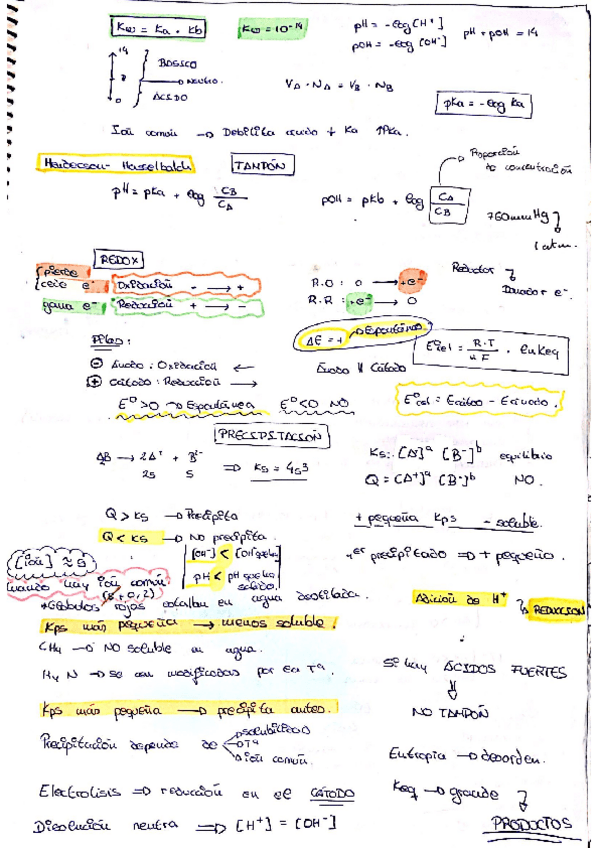 Kw = Ka · Kb
Kw = 10⁻¹⁴
pH = -log[H⁺]
pOH = -log[OH⁻]
pH + pOH = 14
14
BÁSICO
NEUTRO
0
ÁCIDO
VA · NA = VB · NB
pKa = -log Ka
Ion común → Debilita + Ka ↑PKa.
TAMPÓN
Proporción
de concentración
pH = pKa + log CB/CA
pOH = pKb + log CA/CB
760mmHg
1 atm.
REDOX
pierde
cede e⁻ Oxidación - → +
gana e⁻ Reducción + → -
R.O: 0 → +e⁻
R.R: +e⁻ → 0
Reductor
Dador e⁻.
ΔE = + → Espontánea
Pilas:
⊖ Ánodo: Oxidación ←
⊕ Cátodo: Reducción →
Ánodo || Cátodo
E°cel = R·T/nF · lnKeq
E°>0 → Espontánea E°<0 NO
E°cel = Ecátodo - Eánodo.
PRECIPITACIÓN
AB → 2A⁺ + B²⁻
2s s ⇒ Ks = 4s³
Ks: [A]ᵃ [B⁻]ᵇ equilibrio
Q = [A⁺]ᵃ [B⁻]ᵇ NO.
Q > Ks → Precipita
Q < Ks → NO precipita.
+ pequeña Kps - soluble.
[ion] ≈ s
cuando hay ion común
(s + 0,2)
[OH⁻] < [OH⁻]
pH < pH
1er precipitado ⇒ + pequeño.
en agua destilada.
Adición de H⁺
REDUCCION
Kps más pequeña → menos soluble.
CH₄ → NO soluble en agua.
H y N → se ven modificadas por la Tª
Si hay ÁCIDOS FUERTES
⇓
NO TAMPÓN
Kps más pequeña → precipita antes.
Precipitación depende de
solubilidad
Tª
ion común.
Entropía → desorden.
Electrolisis ⇒ reducción en el CÁTODO
Keq → grande
PRODUCTOS
Disolución neutra ⇒ [H⁺] = [OH⁻]